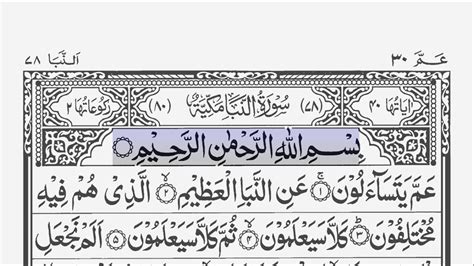 عمّ ٣٠ النبا ٧٨
اٰیاتها ٤٠ (٧٨) سُوْرَةُ النَّبَاِ مَكِّيَّةٌ (٨٠) رکوعاتها ٢
بِسْمِ اللّٰهِ الرَّحْمٰنِ الرَّحِيْمِ
عَمَّ يَتَسَآءَلُوْنَ ۝١ عَنِ النَّبَاِ الْعَظِيْمِ ۝٢ الَّذِيْ هُمْ فِيْهِ
مُخْتَلِفُوْنَ ۝٣ كَلَّا سَيَعْلَمُوْنَ ۝٤ ثُمَّ كَلَّا سَيَعْلَمُوْنَ ۝٥ اَلَمْ نَجْعَلِ